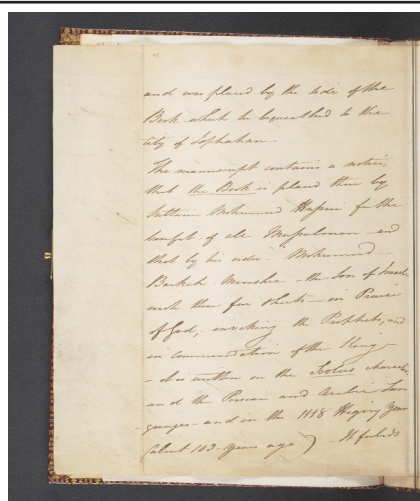 and was placed by the side of the
Book which he bequeathed to the
City of Ispahan –
The manuscript contains a notice,
that the Book is placed there by
Sultaun Mohummud for the
benefit of all Mussulmen – and
that by his order Mohummud
the Son of Ismael
these few sheets – in Praise
of God, invoking the Prophets, and
in commendation of the King –
– It is written in the character,
and the Persian and Arabic Lan
guages – and in the 1118 Hegiry Year
(about 103 years ago)